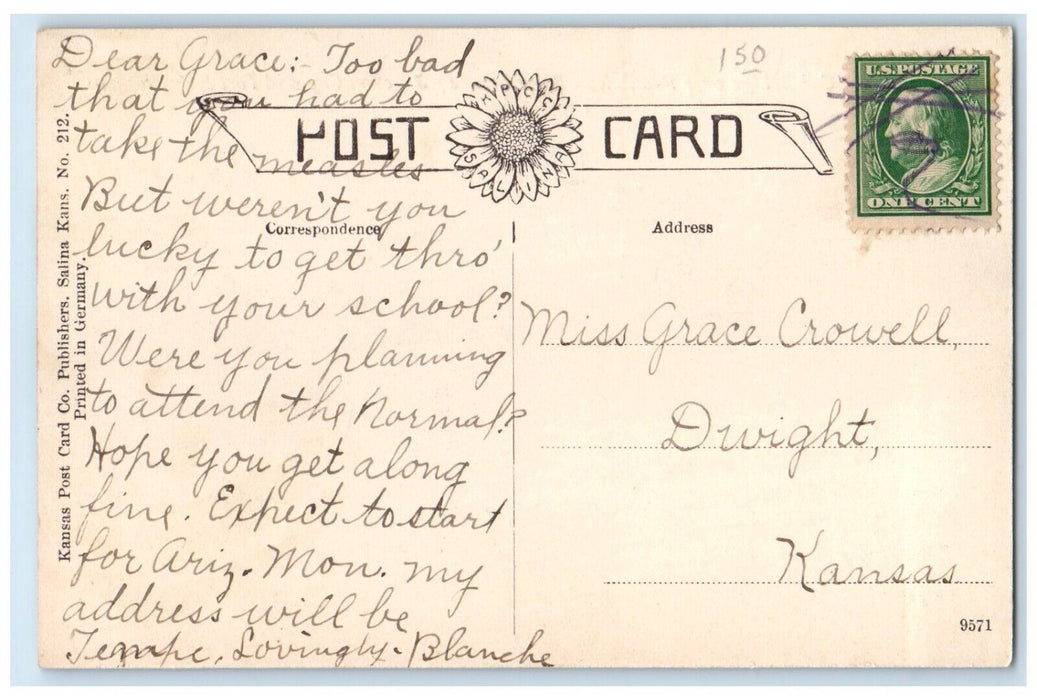 Dear Grace:- Too bad
that you had to
take the measles
But weren't you
lucky to get thro'
with your school?
Were you planning
to attend the Normal?
Hope you get along
fine. Expect to start
for Ariz. Mon. my
address will be
Tempe, Lovingly - Blanche
POST CARD
K.P.C.CO.
SALINA
Correspondence
Address
150
U.S. POSTAGE
ONE CENT
Miss Grace Crowell,
Dwight,
Kansas
9571
Kansas Post Card Co. Publishers. Salina Kans. No. 212.
Printed in Germany.